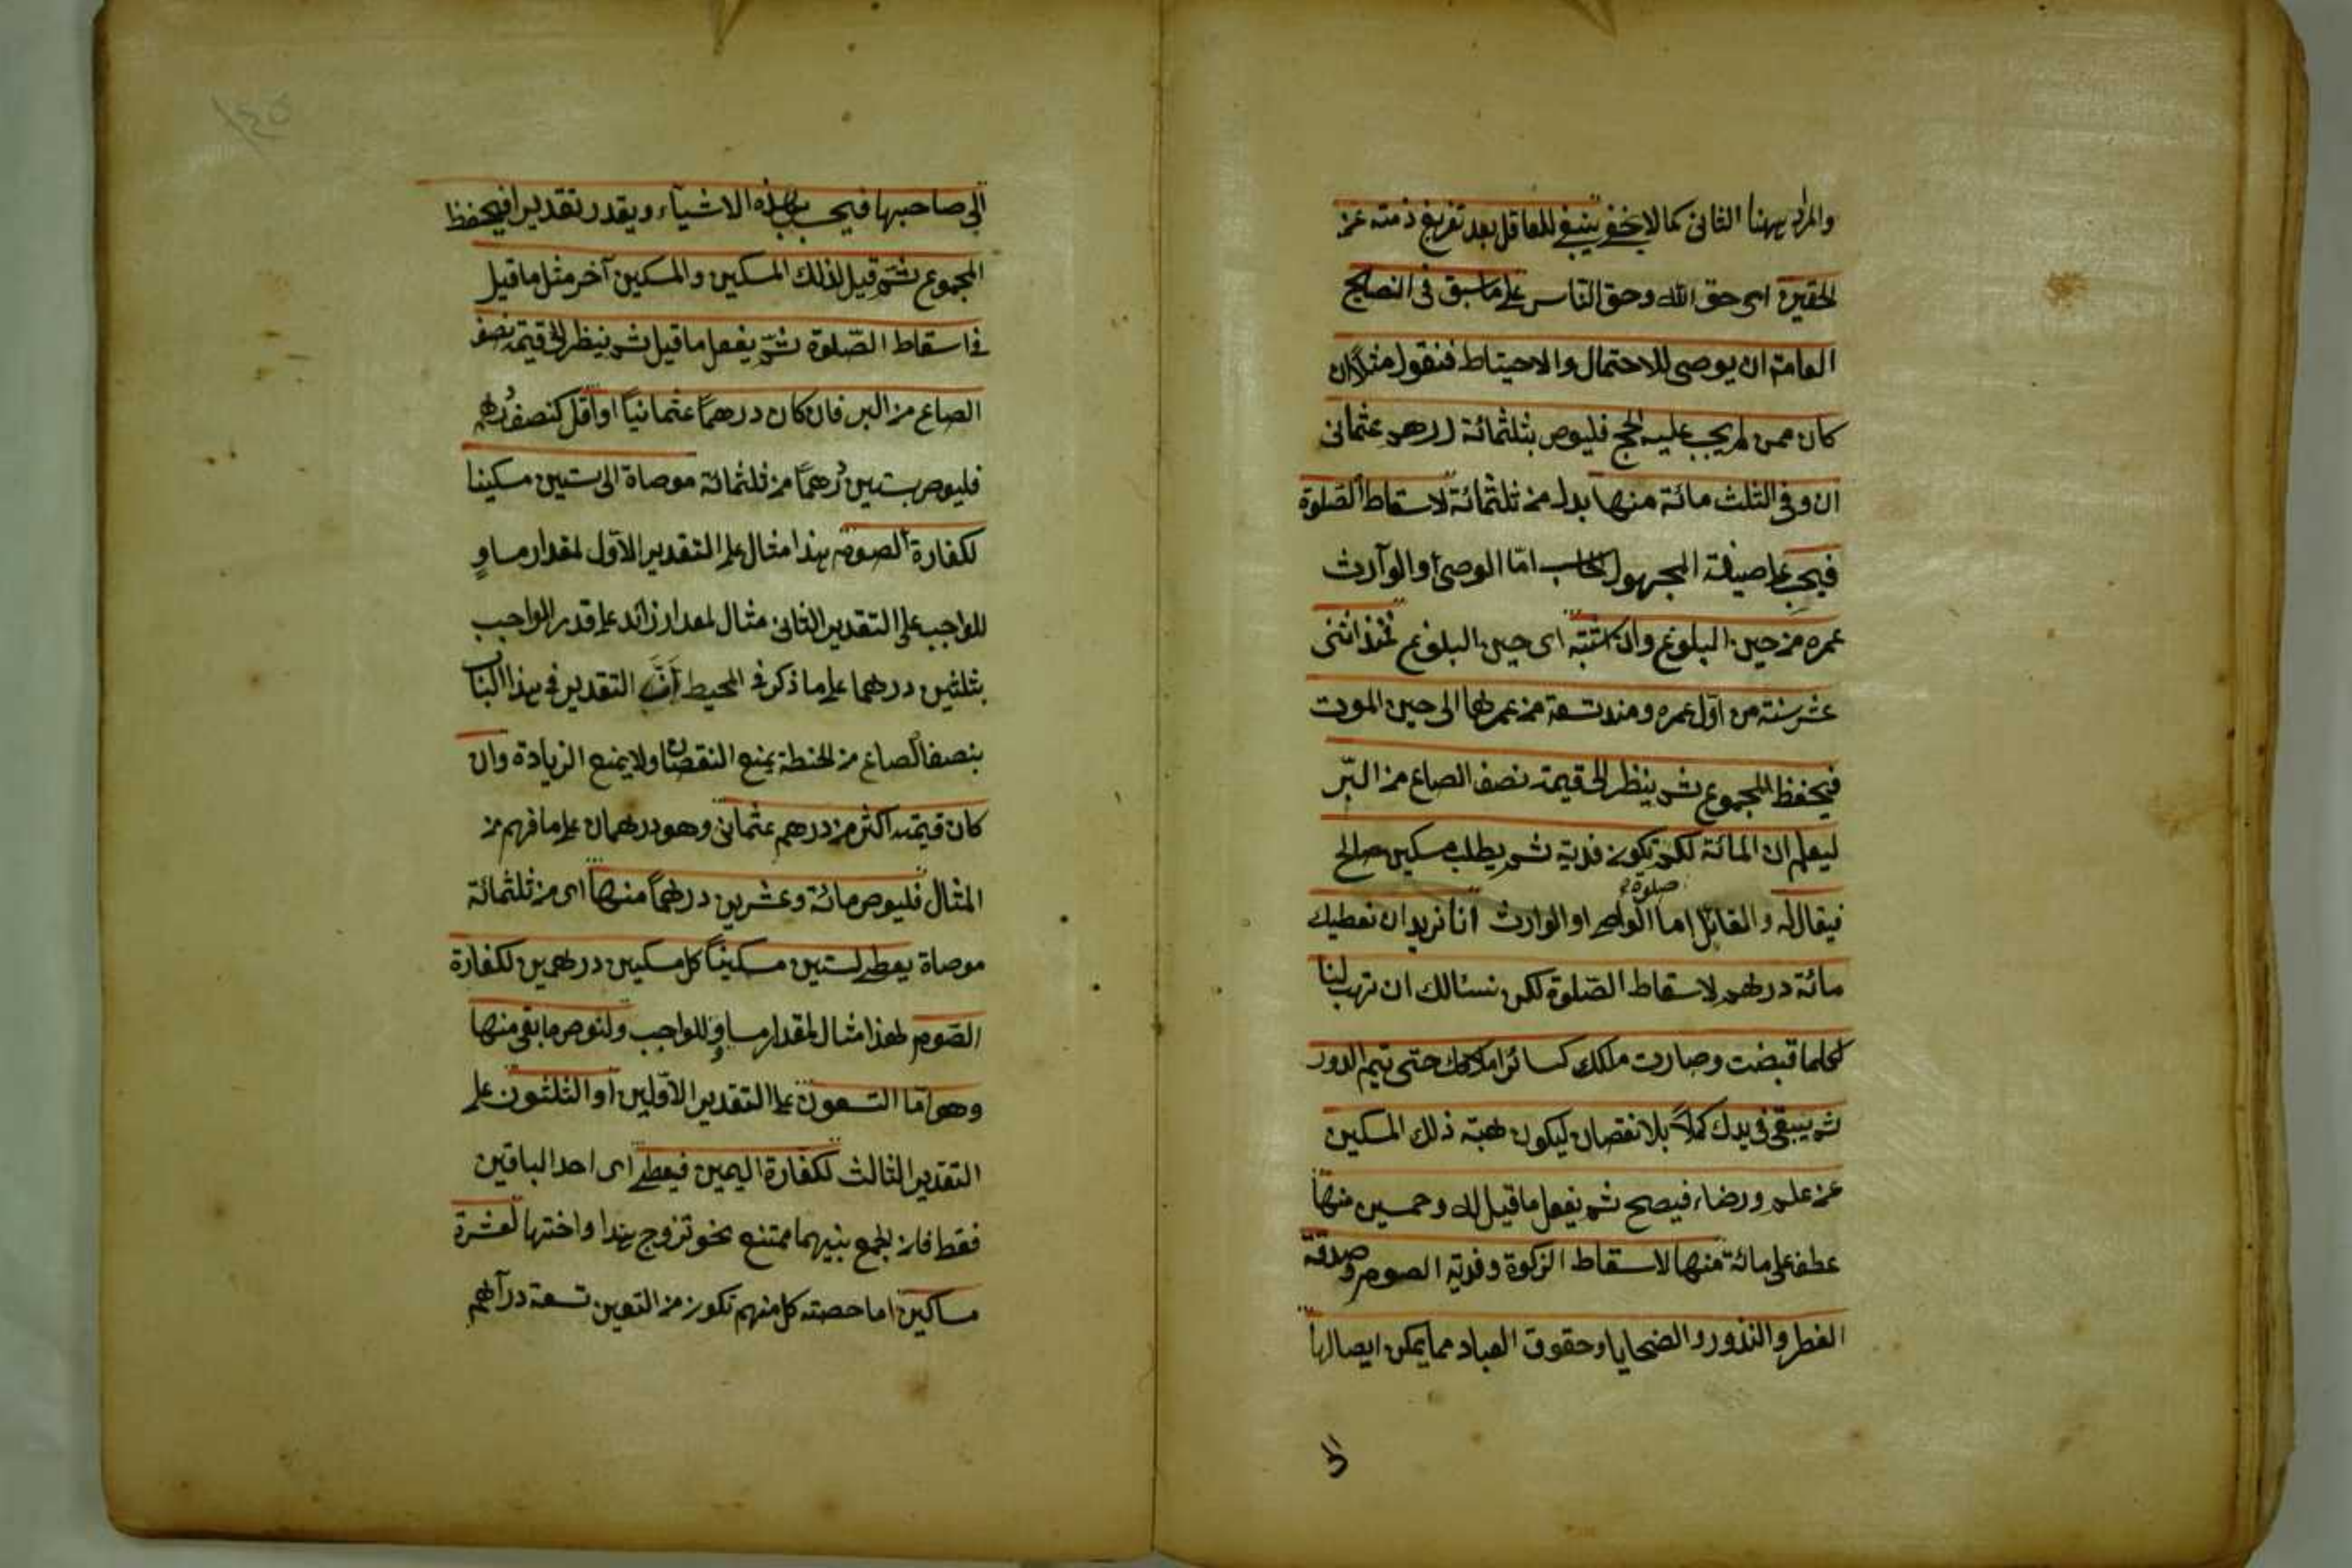 والمراد بهنا الثاني كما لا يخفى ينبغي للعاقل بعد تفريغ ذمته عن
الحقين اى حق الله وحق الناس على ما سبق فى النصايح
العامة ان يوصى للاحتمال والاحتياط فنقول مثلا ان
كان ممن لم يجب عليه الحج فليوص بثلثمائة درهم عثمانى
ان وفى الثلث مائة منها بدل من ثلثمائة لاسقاط الصلوة
فيحب على صيغة المجهول اما الوصى او الوارث
عمره من حين البلوغ وان اشتبه اى حين البلوغ فمنذ اثنى
عشر سنة من اول عمره ومنذ تسعة من عمرها الى حين الموت
فيحفظ المجموع ثم ينظر الى قيمة نصف الصاع من البر
ليعلم ان المائة لكم تكون فدية ثم يطلب مسكين صالح
صلوة
فيقال له والقائل اما الواصى او الوارث انا نريد ان نعطيك
مائة درهم لاسقاط الصلوة لكن نسئالك ان تهب لنا
كلما قبضت وصارت ملكك كسائر املاكك حتى يتم الدور
ثم يبقى فى يدك كملا بلا نقصان ليكون هبة ذلك المسكين
عن علم ورضاء فيصح ثم يفعل ما قيل له وخمسين منها
عطف على مائة منها لاسقاط الزكوة وفدية الصوم وصدقة
الفطر والنذور والضحايا وحقوق العباد مما يمكن ايصالها
الى
١٤٥
الى صاحبها فيحسب هذه الاشياء ويقدر تقديرا فيحفظ
المجموع ثم قيل لذلك المسكين والمسكين آخر مثل ما قيل
فى اسقاط الصلوة ثم يفعل ما قيل ثم ينظر الى قيمة نصف
الصاع من البر فان كان درهما عثمانيا او اقل كنصف درهم
فليوص بستين درهما من ثلثمائة موصاة الى ستين مسكينا
لكفارة الصوم هذا مثال على التقدير الاول لمقدار مساو
للواجب على التقدير الثانى مثال لمقدار زائد على قدر الواجب
بثلثين درهما على ما ذكر فى المحيط ان التقدير فى هذا الباب
بنصف الصاع من الحنطة يمنع النقصان ولا يمنع الزيادة وان
كان قيمته اكثر من درهم عثمانى وهو درهمان على ما فهم من
المثال فليوص مائة وعشرين درهما منها اى من ثلثمائة
موصاة يعطى لستين مسكينا كل مسكين درهمين لكفارة
الصوم هذا مثال لمقدار مساو للواجب ولنوص ما بقى منها
وهو اما التسعون على التقدير الاولين او الثلثون على
التقدير الثالث لكفارة اليمين فيعطى اى احد الباقين
فقط فان الجمع بينهما ممتنع نحو تزوج هندا واختها لعشرة
مساكين اما حصته كل منهم تكون من التعين تسعة دراهم